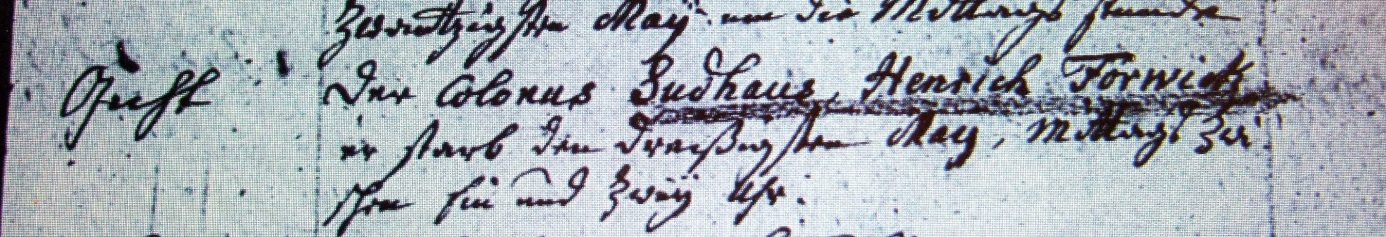 zwantzigsten May um die Mittags stunde
Der Colonus Sudhaus, Henrich Forwick
er starb den dreißigsten May, Mittags zwi
schen Ein und zwey Uhr.